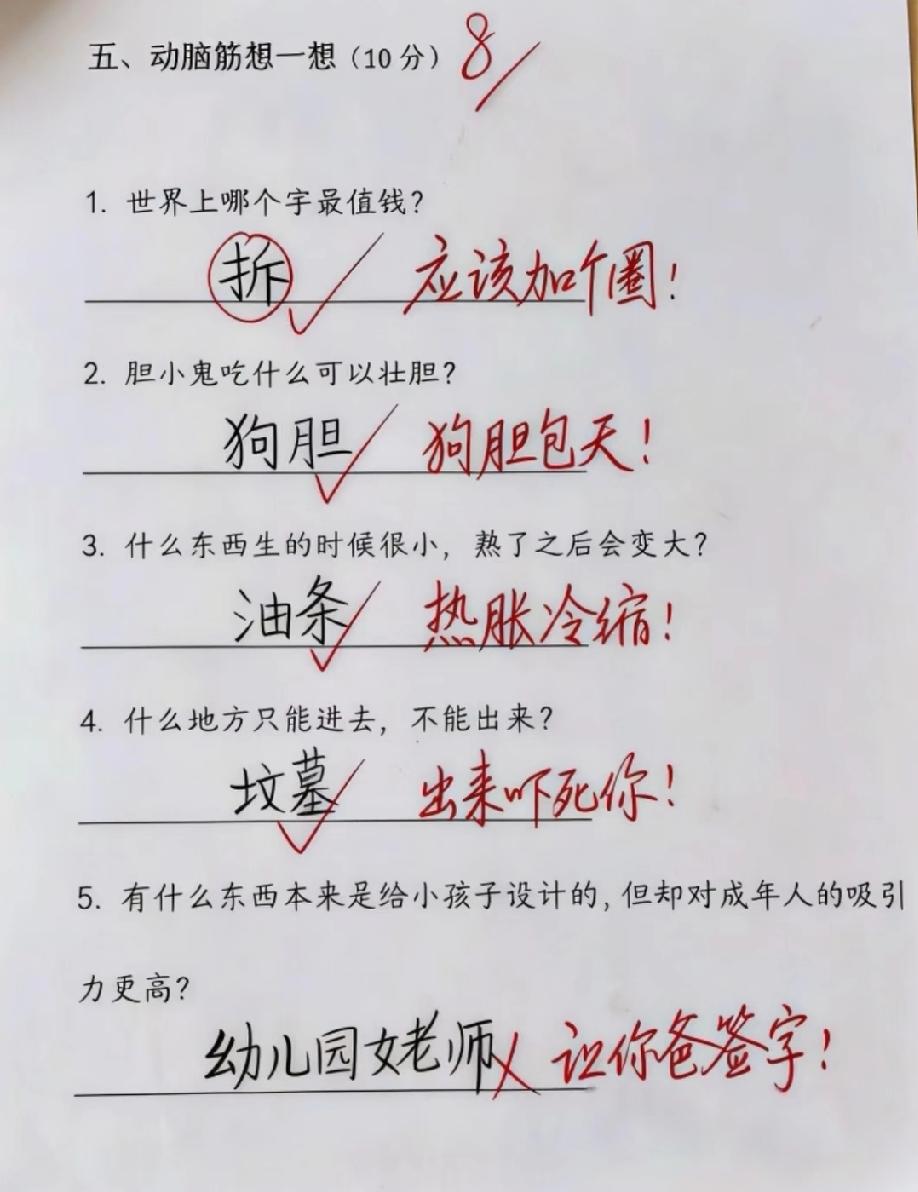 五、动脑筋想一想（10 分） 8
1. 世界上哪个字最值钱？
拆 应该加个圈！
2. 胆小鬼吃什么可以壮胆？
狗胆 狗胆包天！
3. 什么东西生的时候很小，熟了之后会变大？
油条 热胀冷缩！
4. 什么地方只能进去，不能出来？
坟墓 出来吓死你！
5. 有什么东西本来是给小孩子设计的，但却对成年人的吸引
力更高？
幼儿园女老师 让你爸签字！